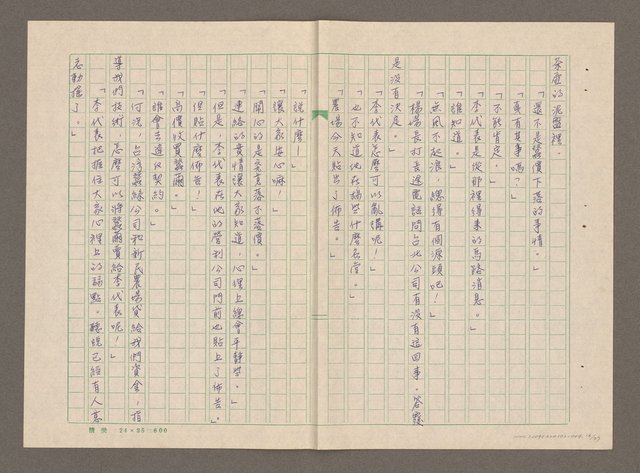 茶庭的泥盤裡
「還不是蠶價下落的事情。」
「真有其事嗎？」
「不能肯定。」
「李代表是從那裡得來的馬路消息。」
「誰知道。」
「無風不起浪，總得有個源頭吧！」
「楊場長打長途電話問台北公司有沒有這回事。答案
是沒有決定。」
「李代表怎麼可以亂講呢！」
「也不知道他在搞些什麼名堂。」
「農場今天貼出了佈告。」
「說什麼！」
「讓大家安心嘛！」
「關心的是蠶繭落不落價。」
「連絡的素情讓大家知道，心理上總會平靜些。」
「但是，李代表在他的營利公司門前也貼上了佈告。」
「但貼什麼佈告！」
「高價收買蠶繭。」
「誰會去違反契約。」
「何況，台灣蠶絲公司和新民農場貸給我們資金，指
導我們技術，怎麼可以將蠶繭賣給李代表呢！」
「李代表把握住大家心裡上的弱點。聽說已經有人意
志動搖了。」
精美 24×25=600